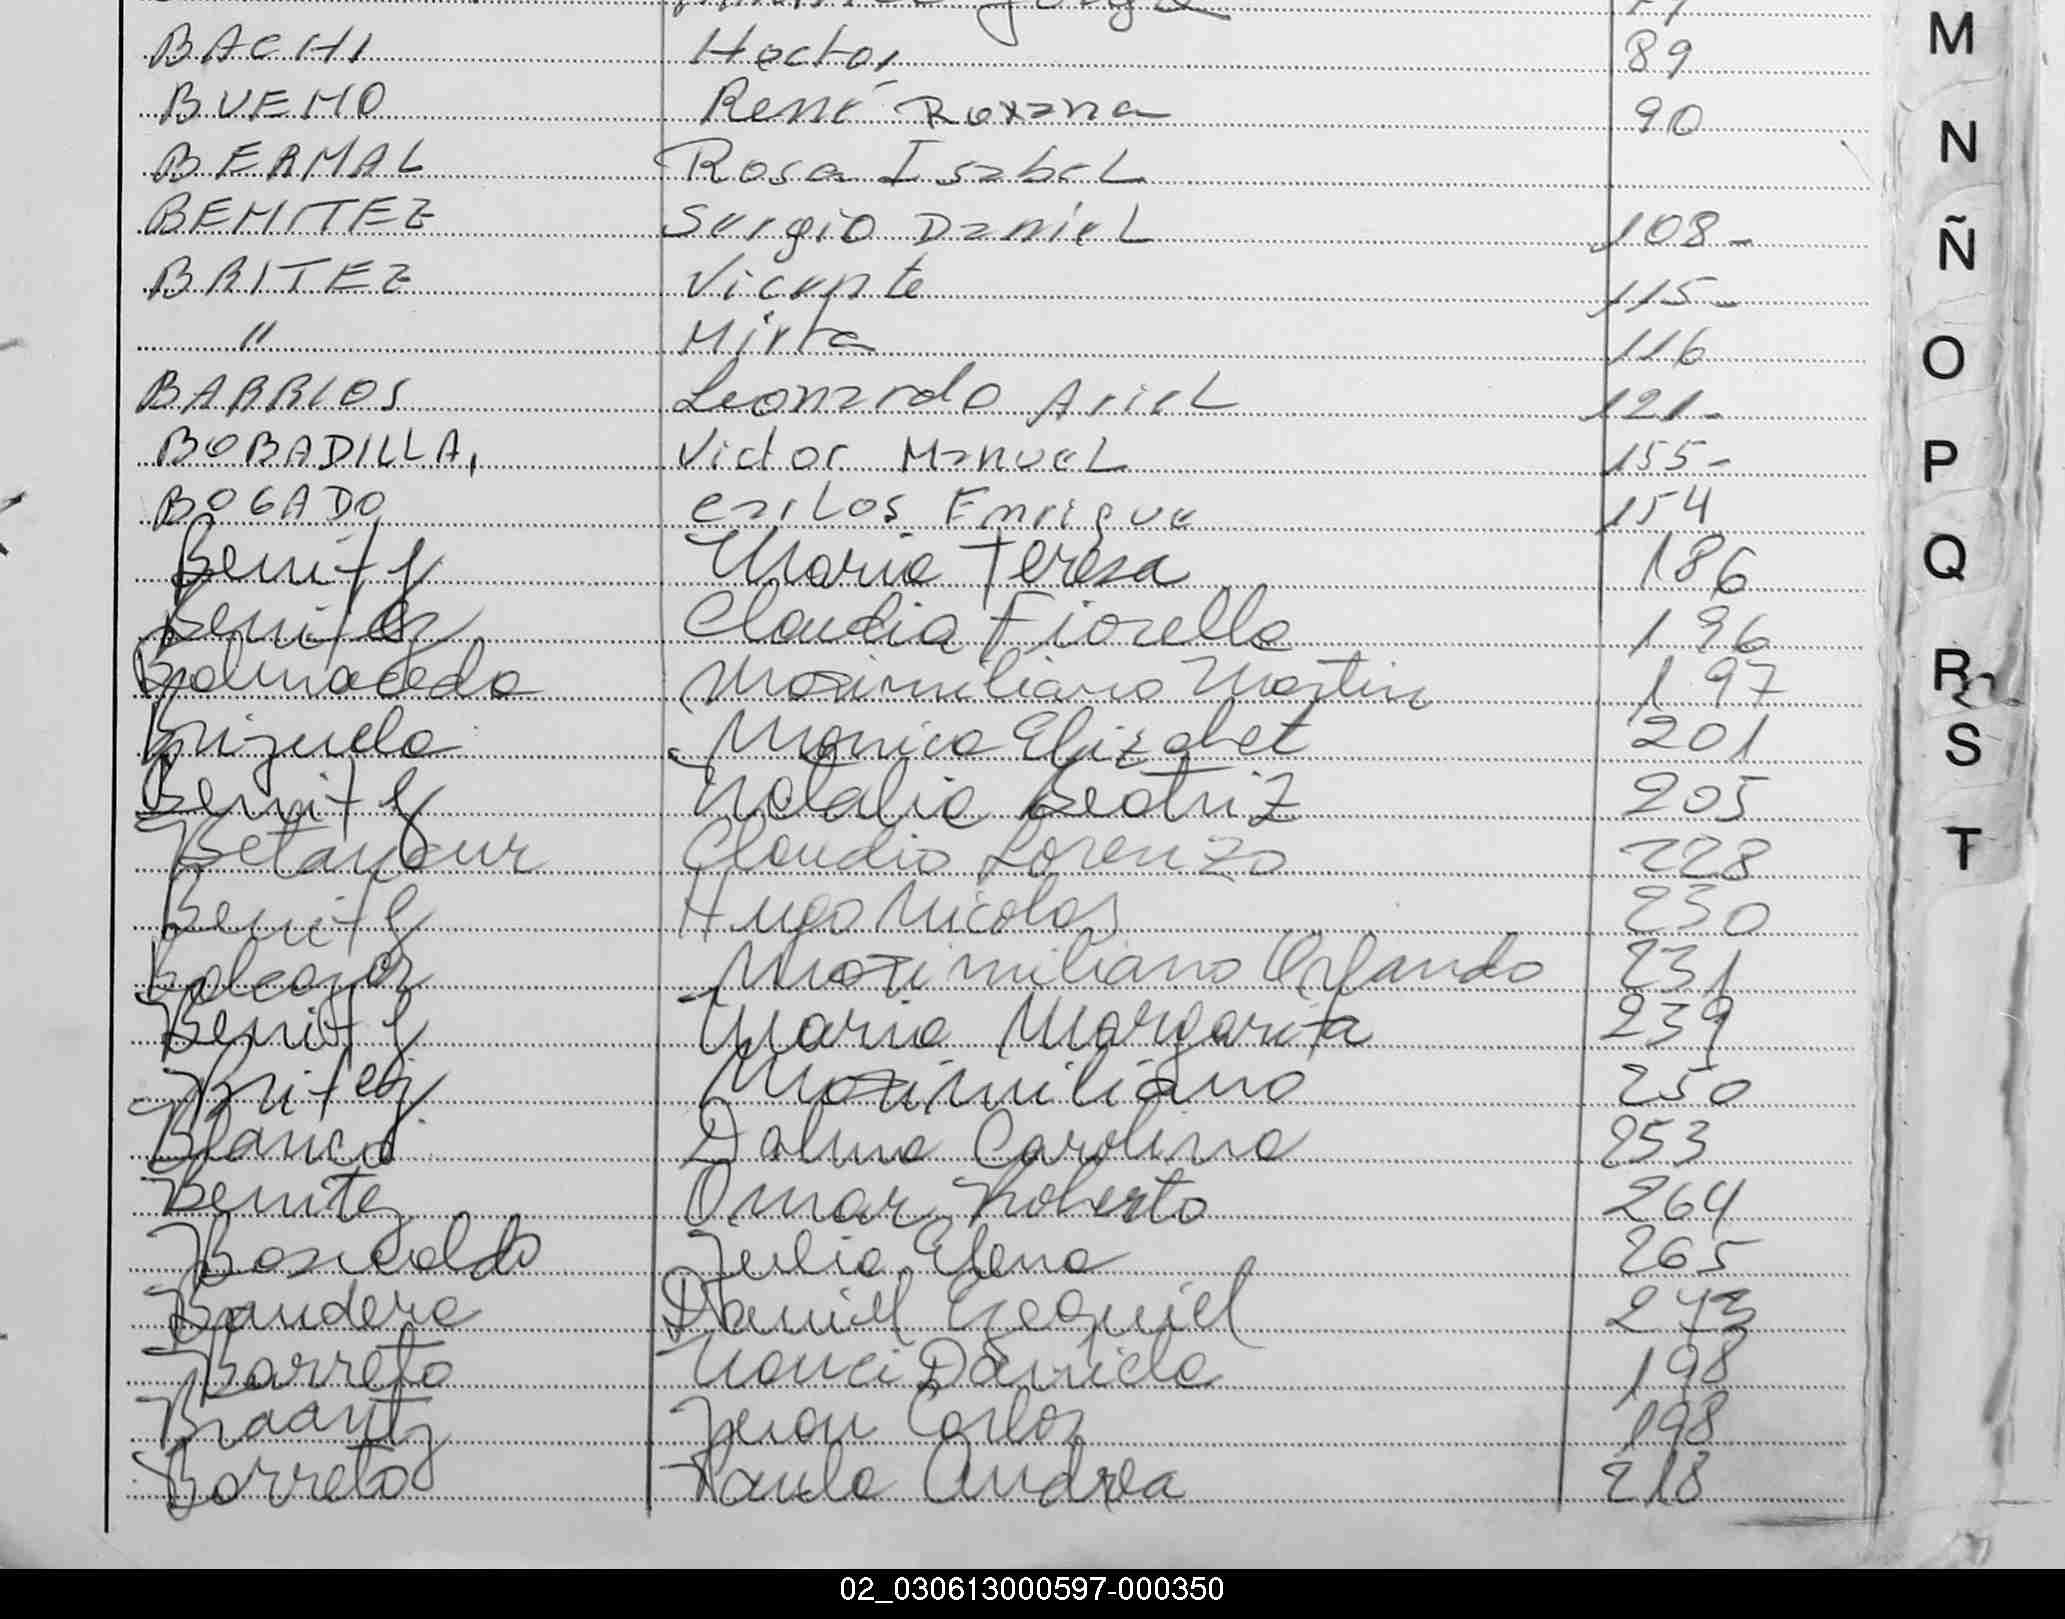 BACHI Hector 89
BUEMO René Roxana 90
BERMAL Rosa IsabeL
BEMITEZ Sergio DanieL 108-
BRITEZ Vicente 115-
" Mirta 116
BARRIOS Leonardo ArieL 121-
BOBADILLA, Victor ManueL 155-
BOGADO carLos Enrique 154
Benitez Maria Teresa 186
Benitez Claudia Fiorella 196
Balmaceda Maximiliano Martin 197
Brizuela Monica Elizabet 201
Benitez Natalia Beatriz 205
Betancur Claudio Lorenzo 228
Benitez Hugo Nicolas 230
Balcazar Maximiliano Orlando 231
Benitez Maria Margarita 239
Britez Maximiliano 250
Blanco Dalma Carolina 253
Benitez Omar Roberto 264
Julia Elena 265
Bandera Daniel Ezequiel 273
Barreto Nanci Daniela 198
Braantz Juan Carlos 198
Barreto Paula Andrea 218
M
N
Ñ
O
P
Q
R
S
T
02_030613000597-000350